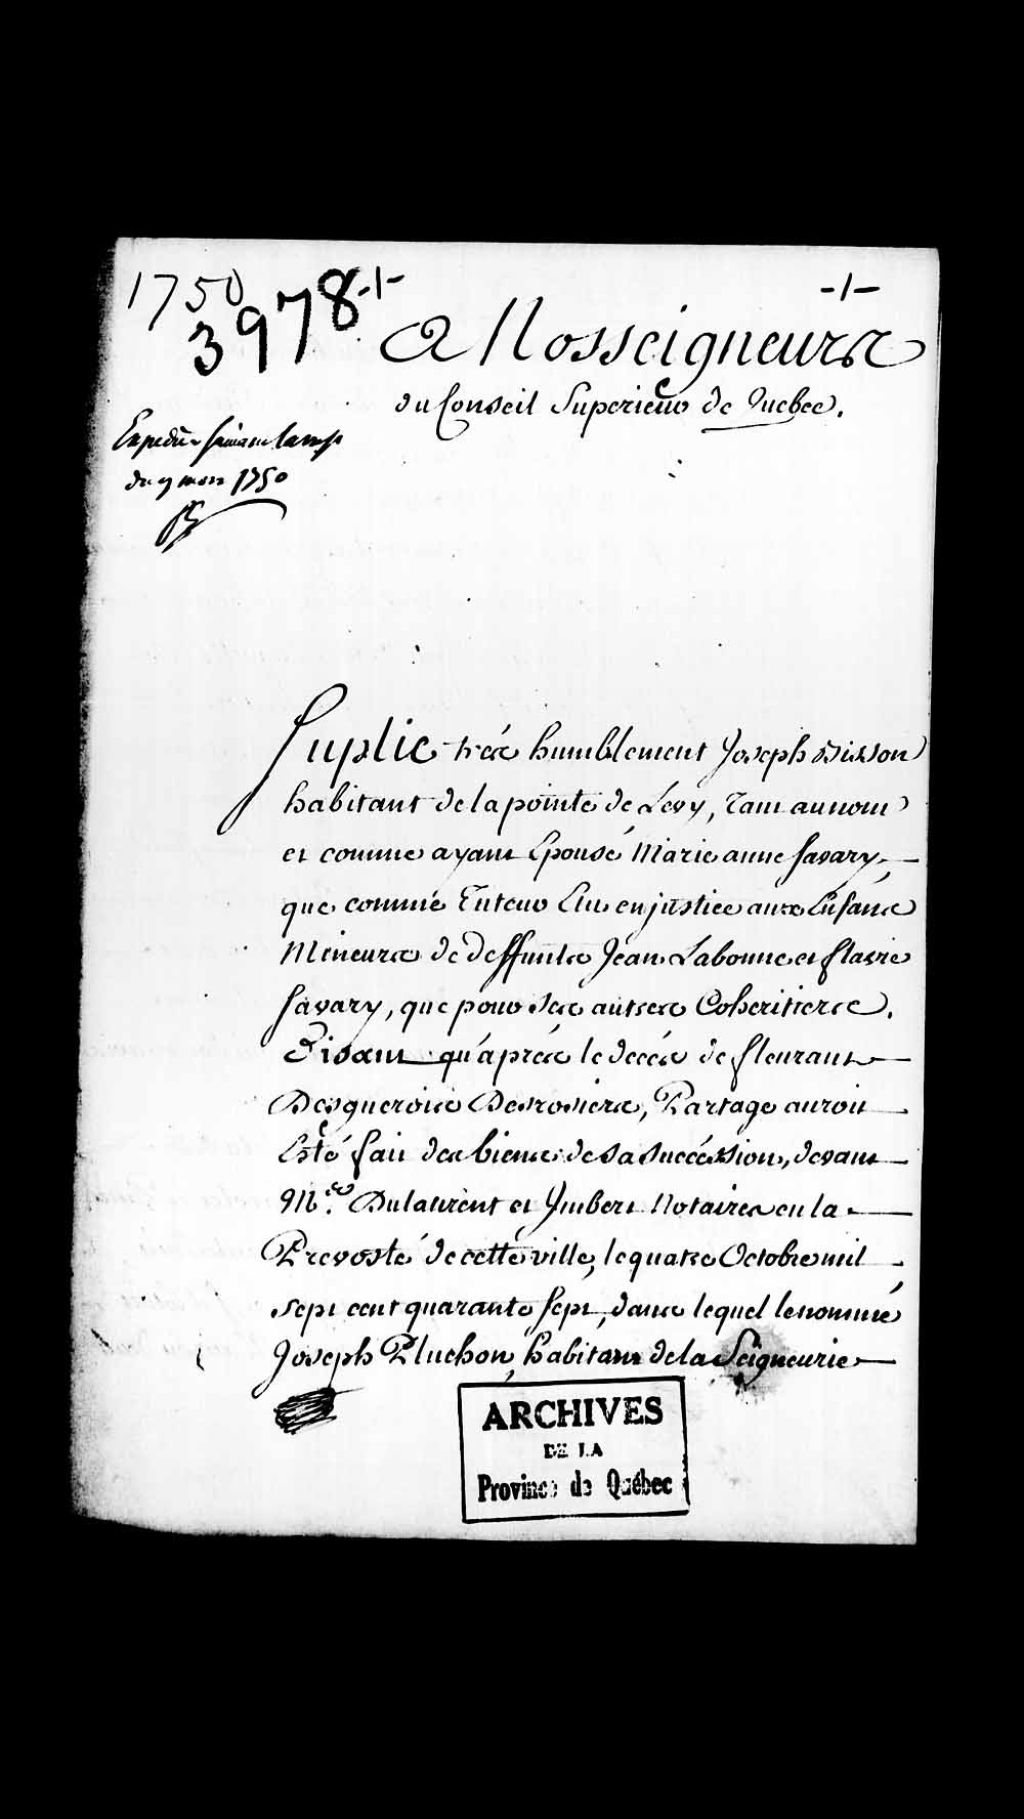 1750
3978 -1-
-1-
A Nosseigneurs
du Conseil Superieur de Quebec.
du 9 mars 1750
Suplie très humblement Joseph Bisson
habitant de la pointe de Levy, Tant au nom
et comme ayant Epousé Marie anne Savary,
que comme Tuteur Elu en justice aux Enfans
Mineurs de deffunts Jean Labonne et flavie
Savary, que pour ses autres Coheritiers.
Disant qu'après le decés de fleurant
Desguerois Desrosiers, Partage auroit
Esté fait des biens de sa succéssion, devant
M.es Dulaurent et Imbert Notaires en la
Prevosté de cette ville, le quatre Octobre mil
sept cent quarante sept, dans lequel le nommé
Joseph Pluchon, habitant de la Seigneurie
ARCHIVES
DE LA
Province de Québec